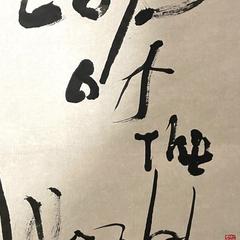 of
The
World